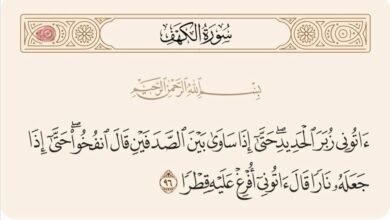 سُورَةُ الكَهْفِ
بِسْمِ اللَّهِ الرَّحْمَٰنِ الرَّحِيمِ
ءَاتُونِي زُبَرَ الْحَدِيدِ ۖ حَتَّىٰٓ إِذَا سَاوَىٰ بَيْنَ الصَّدَفَيْنِ قَالَ انْفُخُوا ۖ حَتَّىٰٓ إِذَا
جَعَلَهُۥ نَارًا قَالَ ءَاتُونِيٓ أُفْرِغْ عَلَيْهِ قِطْرًا ٩٦